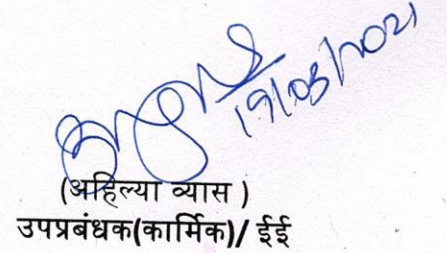 19/03/2021
(अहिल्या व्यास )
उपप्रबंधक(कार्मिक)/ ईई